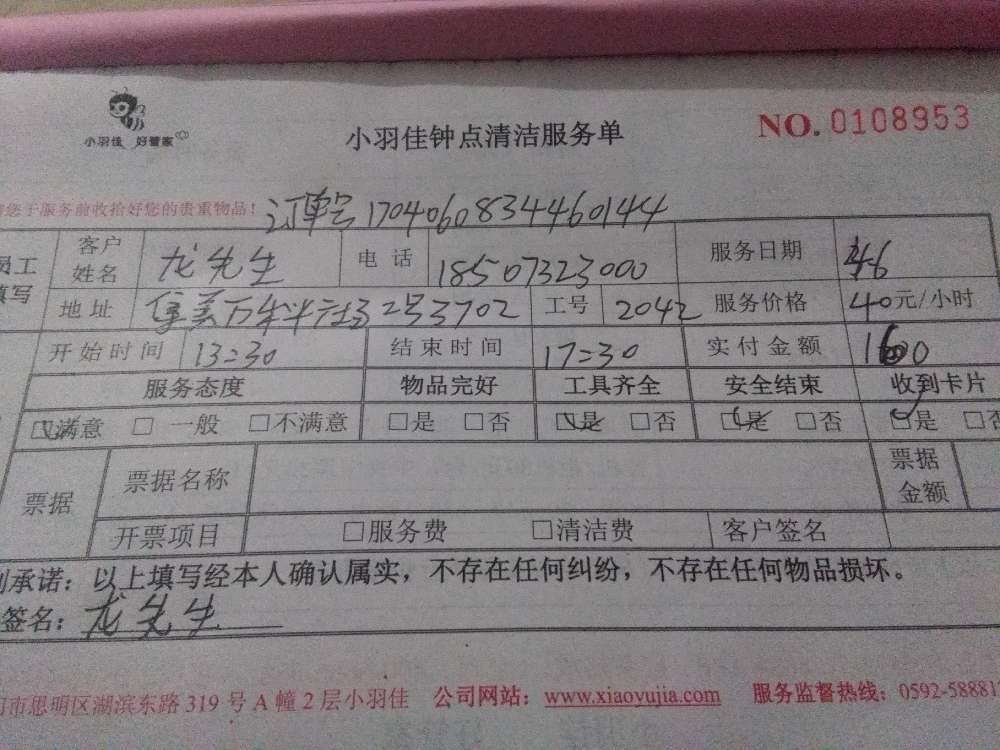 小羽佳 好管家
小羽佳钟点清洁服务单
NO. 0108953
您于服务前收拾好您的贵重物品！
订单号 1704060834460144
员工填写 客户姓名 龙先生 电话 18507323000 服务日期
地址 2号3702 工号 2042 服务价格 40元/小时
开始时间 13:30 结束时间 17:30 实付金额 160
服务态度 物品完好 工具齐全 安全结束 收到卡片
☑满意 □一般 □不满意 □是 □否 ☑是 □否 ☑是 □否 ☑是 □否
票据 票据名称 票据金额
开票项目 □服务费 □清洁费 客户签名
承诺：以上填写经本人确认属实，不存在任何纠纷，不存在任何物品损坏。
签名：龙先生
市思明区湖滨东路 319 号 A 幢 2 层小羽佳 公司网站：www.xiaoyujia.com 服务监督热线：0592-58881